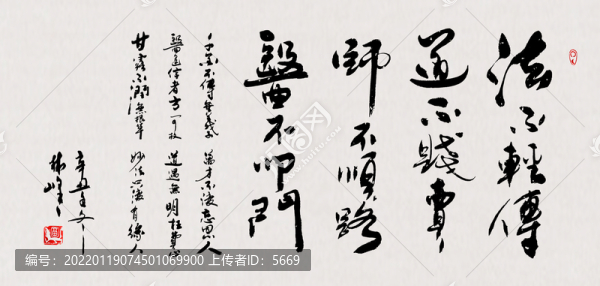 法不輕傳
道不賤賣
師不順路
醫不叩門
千金不傳無義 萬才不渡忘恩人
醫遇信者方可救 道遇無明枉費
甘露不潤無根草 妙法只渡有緣人
辛丑年冬
林峰
编号：20220119074501069900 上传者ID：5669